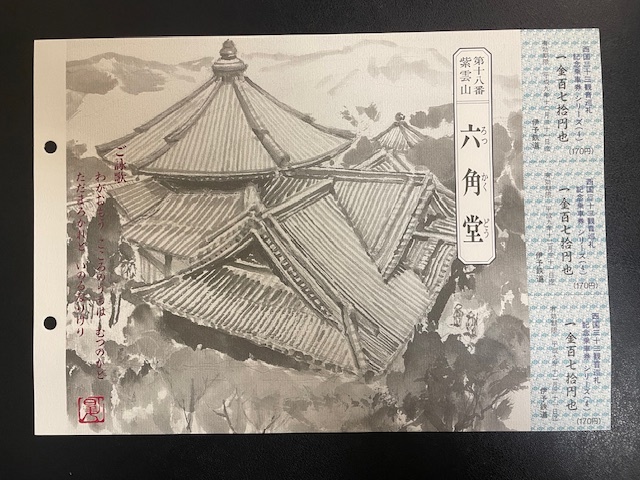 第十八番
紫雲山
六角堂
ろつ
かく
どう
ご詠歌
わがおもう こころのうちは むつのかど
ただまろかれと いのるなりけり
西国三十三観音巡礼
記念乗車券シリーズ(4)
一金百七拾円也
(170円)
伊予鉄道
西国三十三観音巡礼
記念乗車券 シリーズ(4)
一金百七拾円也
(170円)
伊予鉄道
西国三十三観音巡礼
記念乗車券 シリーズ(4)
一金百七拾円也
(170円)
伊予鉄道